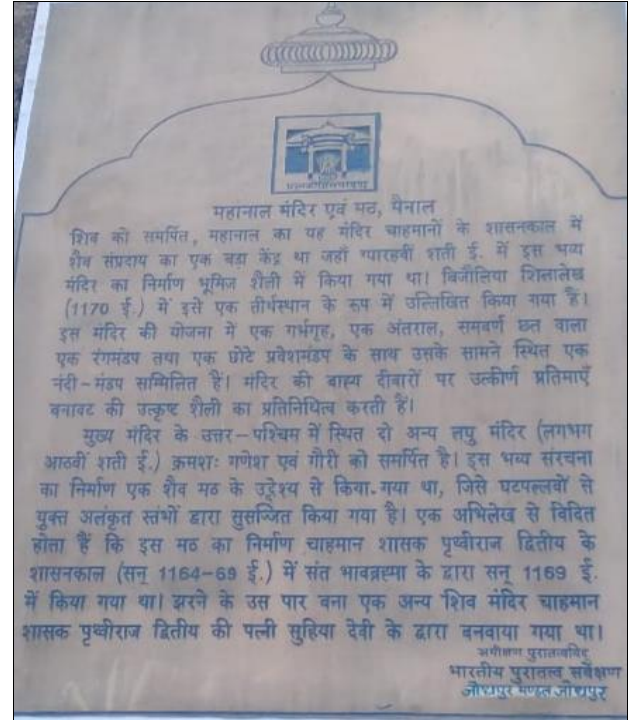 महानाल मंदिर एवं मठ, मैनाल
शिव को समर्पित, महानाल का यह मंदिर चाहमानों के शासनकाल में
शैव संप्रदाय का एक बड़ा केंद्र था जहाँ ग्यारहवीं शती ई. में इस भव्य
मंदिर का निर्माण भूमिज शैली में किया गया था। बिजौलिया शिलालेख
(1170 ई.) में इसे एक तीर्थस्थान के रूप में उल्लिखित किया गया है।
इस मंदिर की योजना में एक गर्भगृह, एक अंतराल, समवर्ण छत वाला
एक रंगमंडप तथा एक छोटे प्रवेशमंडप के साथ उसके सामने स्थित एक
नंदी-मंडप सम्मिलित हैं। मंदिर की बाह्य दीवारों पर उत्कीर्ण प्रतिमाएँ
बनावट की उत्कृष्ट शैली का प्रतिनिधित्व करती हैं।
मुख्य मंदिर के उत्तर-पश्चिम में स्थित दो अन्य लघु मंदिर (लगभग
आठवीं शती ई.) क्रमशः गणेश एवं गौरी को समर्पित है। इस भव्य संरचना
का निर्माण एक शैव मठ के उद्देश्य से किया गया था, जिसे घटपल्लवों से
युक्त अलंकृत स्तंभों द्वारा सुसज्जित किया गया है। एक अभिलेख से विदित
होता हैं कि इस मठ का निर्माण चाहमान शासक पृथ्वीराज द्वितीय के
शासनकाल (सन् 1164-69 ई.) में संत भावब्रह्मा के द्वारा सन् 1169 ई.
में किया गया था। झरने के उस पार बना एक अन्य शिव मंदिर चाहमान
शासक पृथ्वीराज द्वितीय की पत्नी सुहिया देवी के द्वारा बनवाया गया था।
अधीक्षण पुरातत्वविद्
भारतीय पुरातत्व सर्वेक्षण
जोधपुर मण्डल जोधपुर